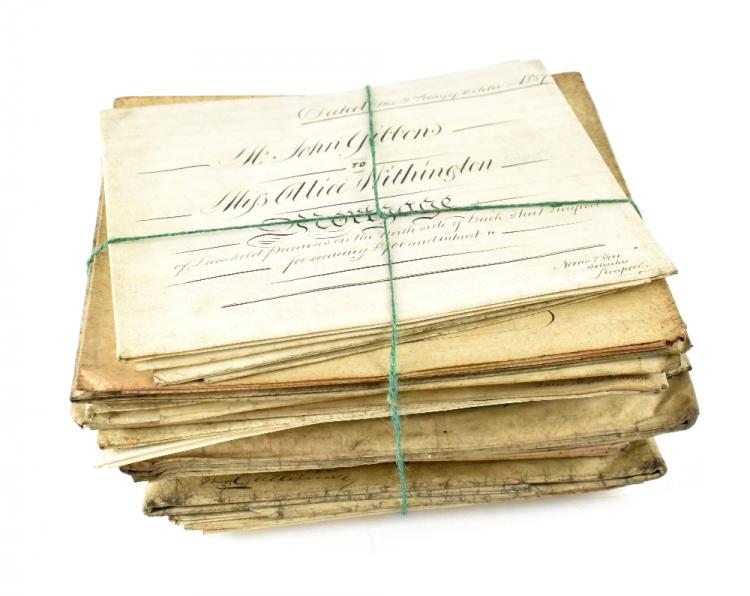 Dated the 9 day of October 1857
Mr. John Gibbons
TO
Miss Alice Withington
Mortgage
of Leasehold Premises on the North side of Buck Street Liverpool
for securing £ and interest
Norris & Son
Solicitors
Liverpool.